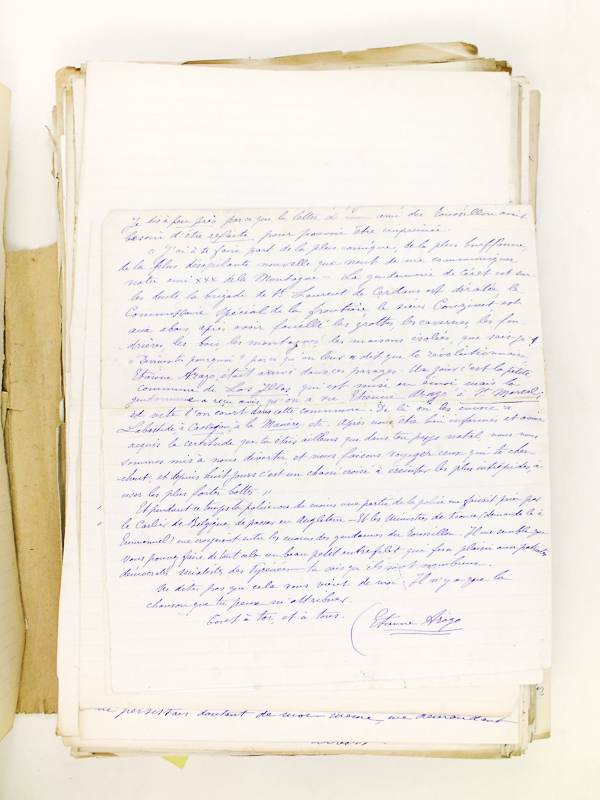 Je dis à peu près parce que la lettre de mon ami du Roussillon avait
besoin d'être refaite pour pouvoir être imprimée.
« J'ai à te faire part de la plus comique, de la plus bouffonne,
de la plus désopilante nouvelle que vient de me communiquer
notre ami xxx de la Montagne — La gendarmerie de Céret est sur
les dents la brigade de St Laurent de Cerdans est dératée le
Commissaire Spécial de la frontière, le sieur Couzinet, est
aux abois, après avoir fouillé les grottes les cavernes les fon-
drières les bois les montagnes les maisons isolées, que sais-je ?
parce qu'on leur a dit que le révolutionnaire
Etienne Arago, était arrivé dans ces parages. Un jour c'est la petite
commune de Las Illas qui est mise en émoi mais la
gendarmerie a reçu avis qu'on a vu Etienne Arago à St Marsal;
et vite l'on court dans cette commune. De là on les envoie à
Labastide à Castagn à la Manère etc. Après nous être bien informés et avoir
acquis la certitude que tu étais ailleurs que dans ton pays natal, nous nous
sommes mis à nous divertir, et nous faisons voyager ceux qui te cher-
chent, et depuis huit jours c'est un chassé croisé à éreinter les plus intrépides, à
user les plus fortes bottes. »
Et pendant ce temps la police ou du moins une partie de la police me faisait prier par
le Carlier de Belgique, de passer en Angleterre — Et les Ministres de France (demande le à
Emmanuel) me croyaient entre les mains des gendarmes du Roussillon. Il me semble que
vous pouvez faire de tout cela un beau petit entrefilet, que fera plaisir aux patriotes
démocrates socialistes des Pyrénées — tu sais qu'ils sont nombreux.
Ne dites pas que cela vous vient de moi. Il n'y a que la
chanson que tu peux m'attribuer.
Tout à toi, et à tous.
Etienne Arago
persistais doutant de moi-même, me demandant